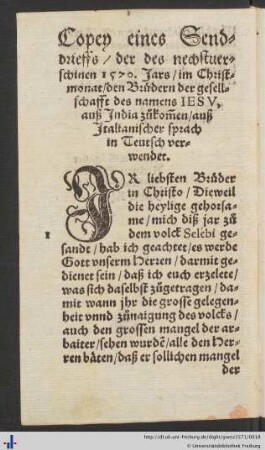 Copey eines Send-
drieffs / der des nechstuer-
schinen 1570. Jars / im Christ-
monat / den Brüdern der gesell-
schafft des namens IESV,
auß India zůkom̃en / auß
Italianischer sprach
in Teutsch ver-
wendet.
IR liebsten Brüder
in Christo / Dieweil
die heylige gehorsa-
me / mich diß jar zů
dem volck Selebi ge-
1
sandt / hab ich geachtet / es werde
Gott vnserm Herren / darmit ge-
dienet sein / daß ich euch erzelete /
was sich daselbst zůgetragen / da-
mit wann jhr die grosse gelegen-
heit vnnd zůnaigung des volcks /
auch den grossen mangel der ar-
baiter / sehen wurdẽ / alle den Her-
ren bäten / daß er sollichen mangel
der
http://dl.ub.uni-freiburg.de/diglit/perez1571/0018
© Universitätsbibliothek Freiburg